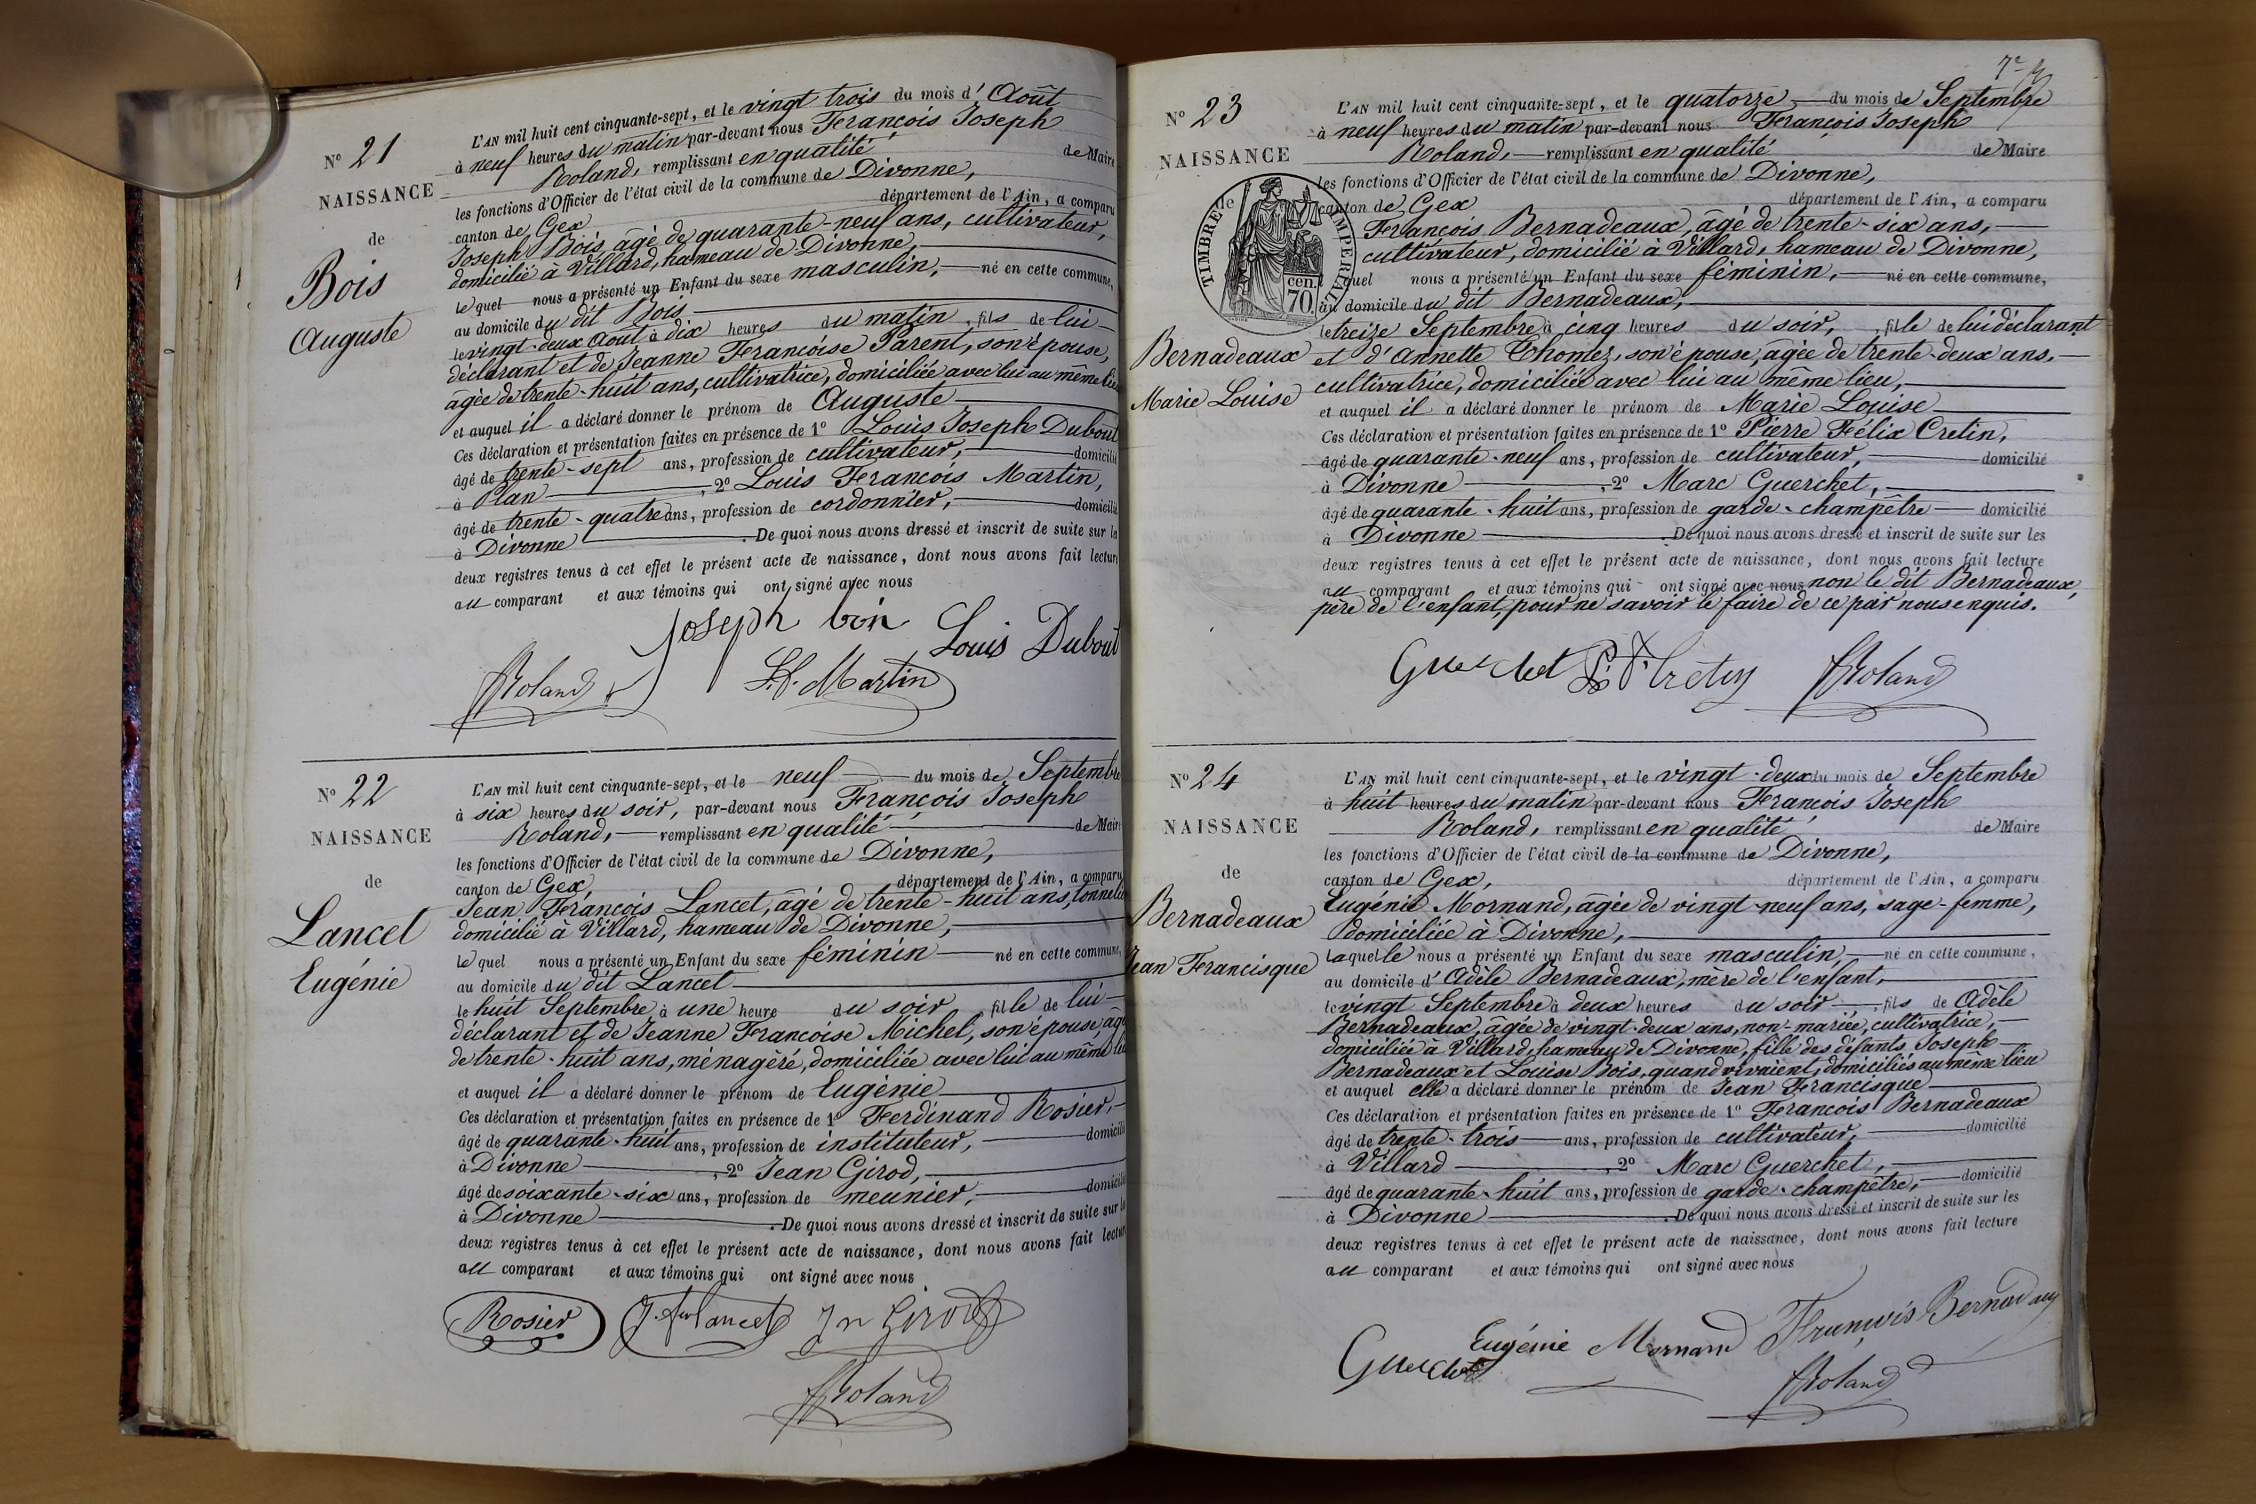 N° 21
NAISSANCE
de
Bois
Auguste
L'AN mil huit cent cinquante-sept, et le vingt trois du mois d'Août
à neuf heures du matin par-devant nous François Joseph
Roland, remplissant en qualité de Maire
les fonctions d'Officier de l'état civil de la commune de Divonne,
canton de Gex département de l'Ain, a comparu
Joseph Bois, âgé de quarante-neuf ans, cultivateur,
domicilié à Villard, hameau de Divonne,
lequel nous a présenté un Enfant du sexe masculin, né en cette commune,
au domicile du dit Bois
le vingt-deux Août à dix heures du matin, fils de lui
déclarant et de Jeanne Françoise Parent, son épouse,
âgée de trente-huit ans, cultivatrice, domiciliée avec lui au même lieu
et auquel il a déclaré donner le prénom de Auguste
Ces déclaration et présentation faites en présence de 1° Louis Joseph Dubout
âgé de trente-sept ans, profession de cultivateur, domicilié
à Plan, 2° Louis François Martin,
âgé de trente-quatre ans, profession de cordonnier, domicilié
à Divonne. De quoi nous avons dressé et inscrit de suite sur les
deux registres tenus à cet effet le présent acte de naissance, dont nous avons fait lecture
au comparant et aux témoins qui ont signé avec nous
Joseph bois Louis Dubout
Roland L. F. Martin
N° 22
NAISSANCE
de
Lancet
Eugénie
L'AN mil huit cent cinquante-sept, et le neuf du mois de Septembre
à six heures du soir, par-devant nous François Joseph
Roland, remplissant en qualité de Maire
les fonctions d'Officier de l'état civil de la commune de Divonne,
canton de Gex, département de l'Ain, a comparu
Jean François Lancet, âgé de trente-huit ans, tonnelier
domicilié à Villard, hameau de Divonne,
lequel nous a présenté un Enfant du sexe féminin né en cette commune,
au domicile du dit Lancet
le huit Septembre à une heure du soir, fille de lui
déclarant et de Jeanne Françoise Michel, son épouse, âgée
de trente-huit ans, ménagère, domiciliée avec lui au même lieu
et auquel il a déclaré donner le prénom de Eugénie
Ces déclaration et présentation faites en présence de 1° Ferdinand Rosier,
âgé de quarante-huit ans, profession de instituteur, domicilié
à Divonne, 2° Jean Girod,
âgé de soixante-six ans, profession de meunier, domicilié
à Divonne. De quoi nous avons dressé et inscrit de suite sur les
deux registres tenus à cet effet le présent acte de naissance, dont nous avons fait lecture
au comparant et aux témoins qui ont signé avec nous
Rosier Lancet Jn Girod
Roland
N° 23
NAISSANCE
de
TIMBRE IMPERIAL
70 cen.
Bernadeaux
Marie Louise
L'AN mil huit cent cinquante-sept, et le quatorze du mois de Septembre
à neuf heures du matin par-devant nous François Joseph
Roland, remplissant en qualité de Maire
les fonctions d'Officier de l'état civil de la commune de Divonne,
canton de Gex département de l'Ain, a comparu
François Bernadeaux, âgé de trente-six ans,
cultivateur, domicilié à Villard, hameau de Divonne,
lequel nous a présenté un Enfant du sexe féminin, né en cette commune,
au domicile du dit Bernadeaux,
le treize Septembre à cinq heures du soir, fille de lui déclarant
et d'Annette Thomez, son épouse, âgée de trente-deux ans,
cultivatrice, domiciliée avec lui au même lieu,
et auquel il a déclaré donner le prénom de Marie Louise
Ces déclaration et présentation faites en présence de 1° Pierre Félix Cretin,
âgé de quarante-neuf ans, profession de cultivateur, domicilié
à Divonne, 2° Marc Guerchet,
âgé de quarante-huit ans, profession de garde-champêtre domicilié
à Divonne. De quoi nous avons dressé et inscrit de suite sur les
deux registres tenus à cet effet le présent acte de naissance, dont nous avons fait lecture
au comparant et aux témoins qui ont signé avec nous non le dit Bernadeaux,
père de l'enfant, pour ne savoir le faire de ce par nous enquis.
Guerchet P. F. Cretin Roland
N° 24
NAISSANCE
de
Bernadeaux
Jean Francisque
L'AN mil huit cent cinquante-sept, et le vingt-deux du mois de Septembre
à huit heures du matin par-devant nous François Joseph
Roland, remplissant en qualité de Maire
les fonctions d'Officier de l'état civil de la commune de Divonne,
canton de Gex, département de l'Ain, a comparu
Eugénie Mornand, âgée de vingt-neuf ans, sage-femme,
domiciliée à Divonne,
laquelle nous a présenté un Enfant du sexe masculin, né en cette commune,
au domicile d'Adèle Bernadeaux, mère de l'enfant,
le vingt Septembre à deux heures du soir, fils de Adèle
Bernadeaux, âgée de vingt-deux ans, non-mariée, cultivatrice,
domiciliée à Villard, hameau de Divonne, fille des défunts Joseph
Bernadeaux et Louise Bois, quand vivaient, domiciliés au même lieu
et auquel elle a déclaré donner le prénom de Jean Francisque
Ces déclaration et présentation faites en présence de 1° François Bernadeaux
âgé de trente-trois ans, profession de cultivateur, domicilié
à Villard, 2° Marc Guerchet,
âgé de quarante-huit ans, profession de garde-champêtre, domicilié
à Divonne. De quoi nous avons dressé et inscrit de suite sur les
deux registres tenus à cet effet le présent acte de naissance, dont nous avons fait lecture
au comparant et aux témoins qui ont signé avec nous
Eugénie Mornand François Bernadaux
Guerchet Roland